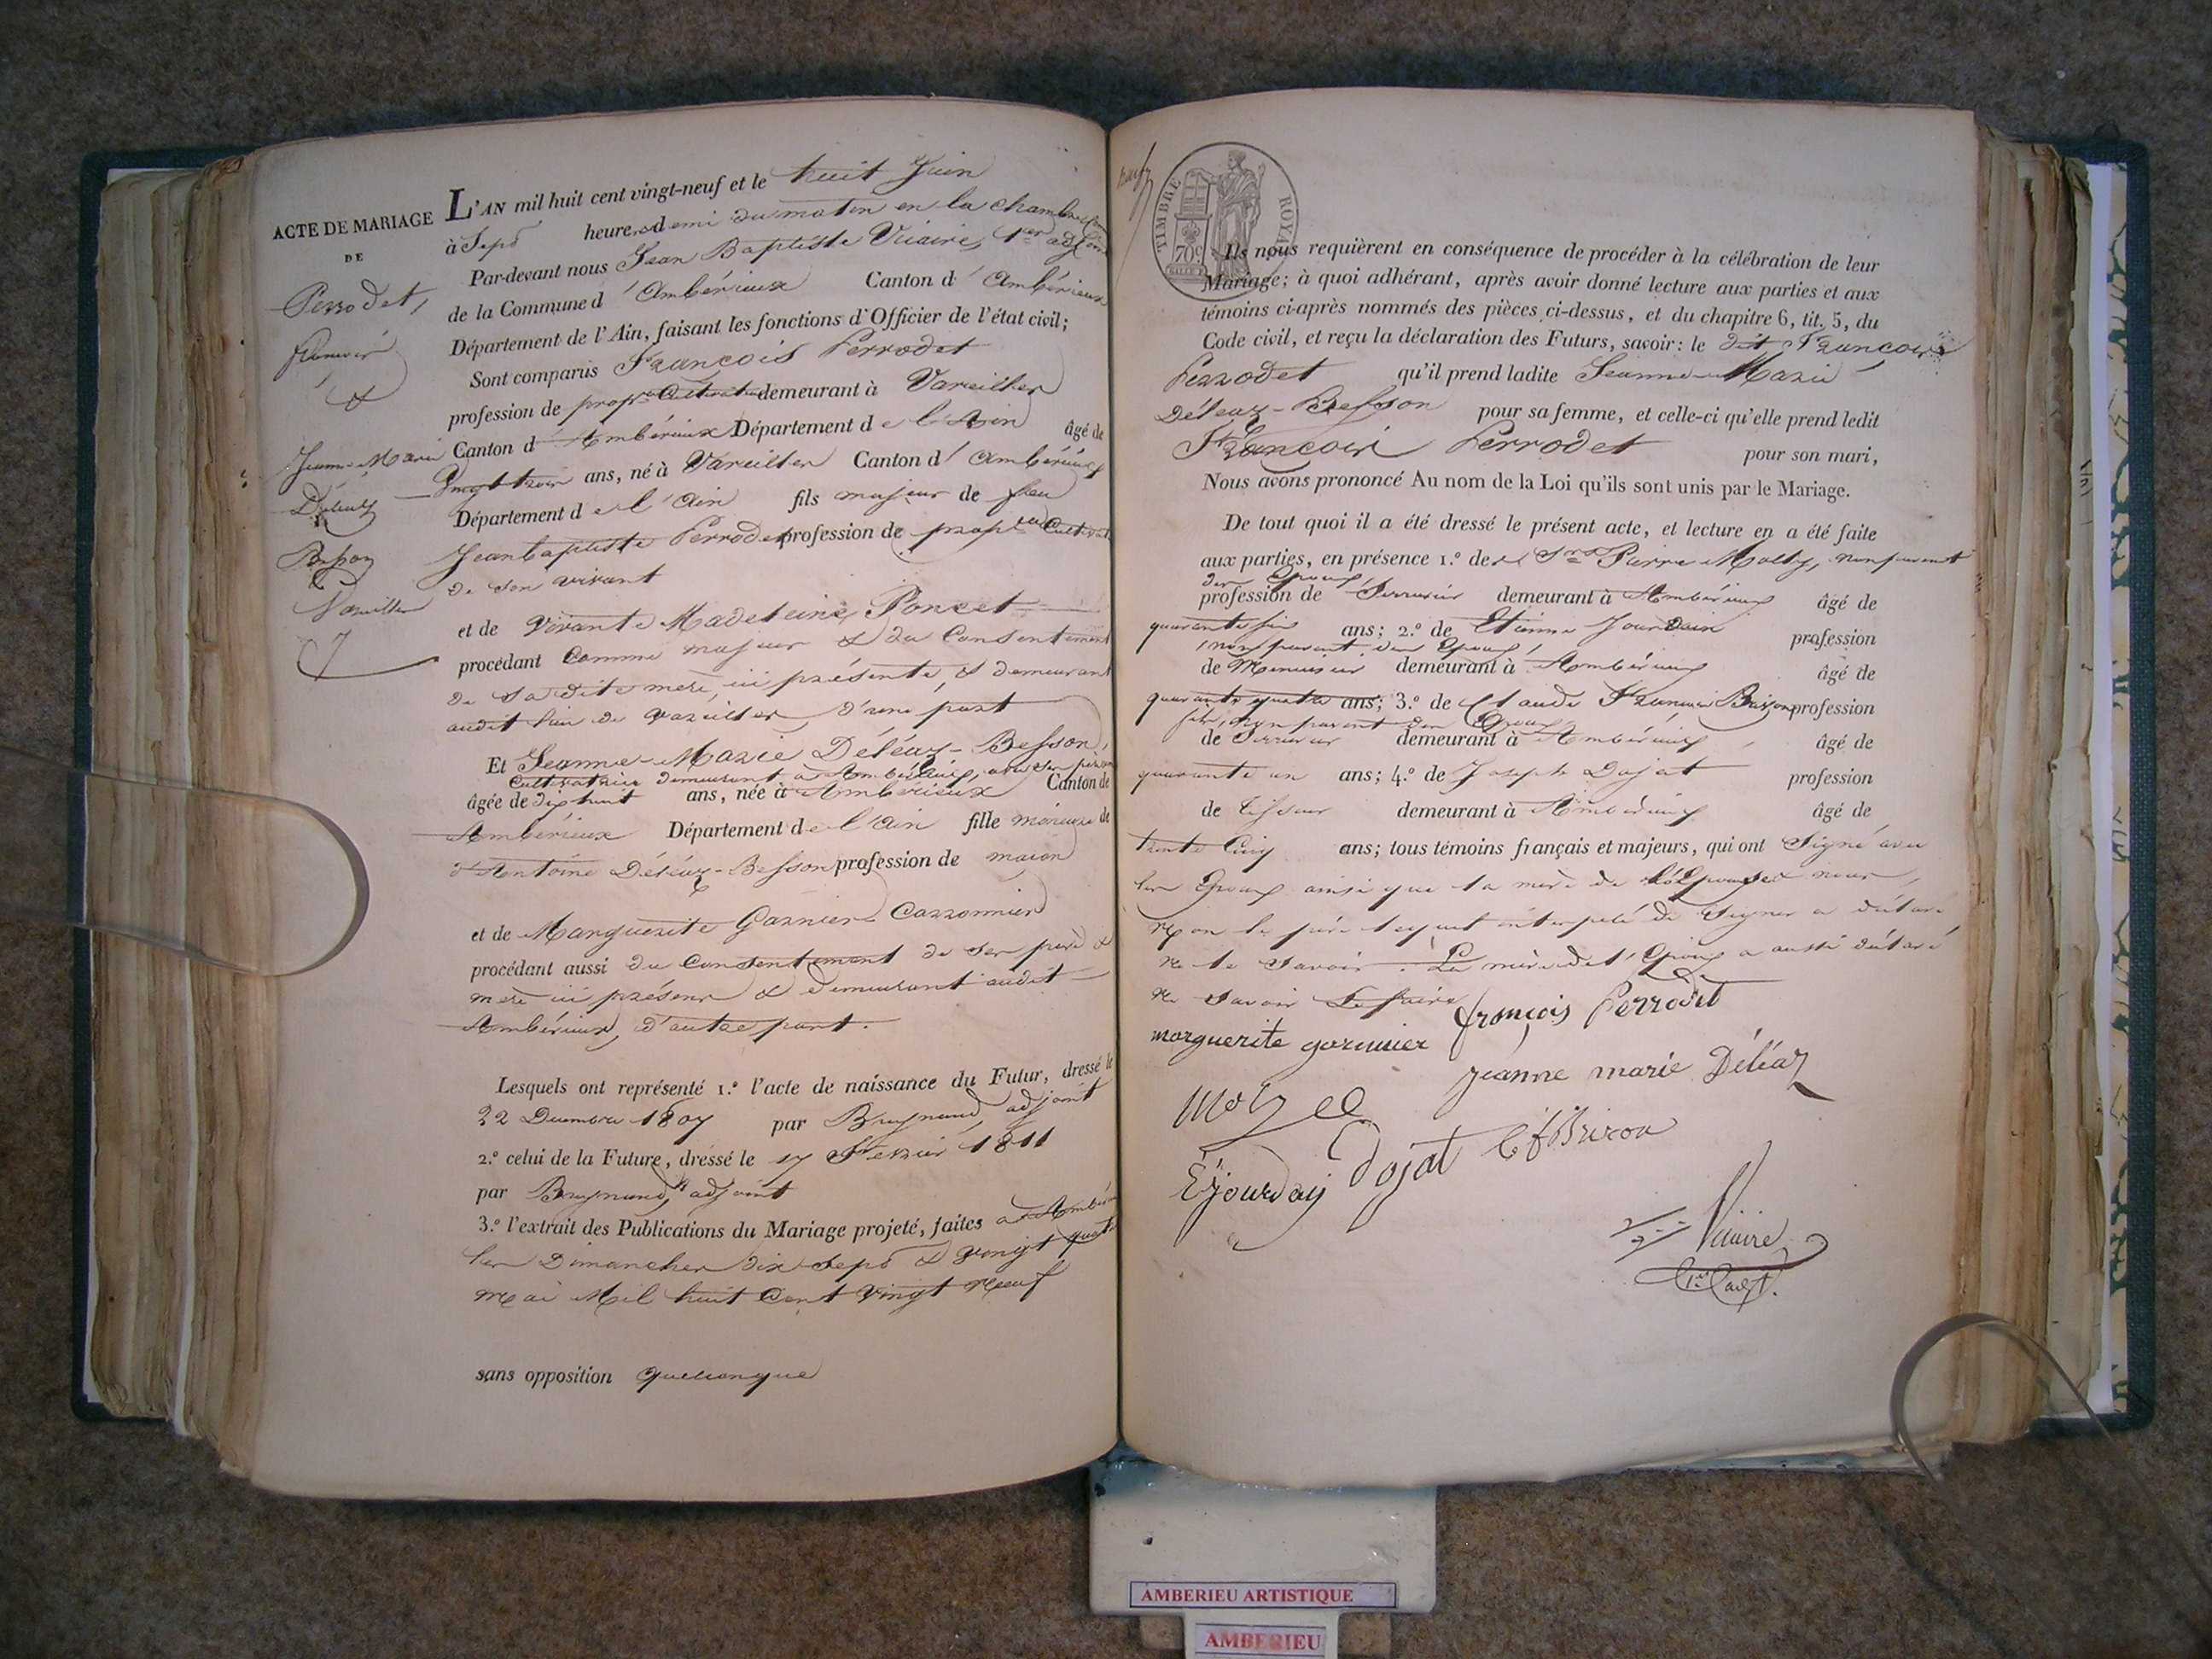 ACTE DE MARIAGE
DE
Perrodet,
françois
&
Jeanne-Marie
Déléaz
Besson
Vareilles
L'AN mil huit cent vingt-neuf et le huit Juin
à Sept heures demi du matin en la chambre
Par-devant nous Jean Baptiste Vicaire, 1er adjoint
de la Commune d'Ambérieux Canton d'Ambérieux
Département de l'Ain, faisant les fonctions d'Officier de l'état civil;
Sont comparus François Perrodet
profession de propre Cultivateur demeurant à Vareilles
Canton d'Ambérieux Département de l'Ain âgé de
Vingt trois ans, né à Vareilles Canton d'Ambérieux
Département de l'Ain fils majeur de feu
Jean baptiste Perrodet profession de propre Cultivat
de son vivant
et de Vivante Madeleine Poncet
procédant Comme majeur & du Consentement
de sa dite mère, ici présente, & demeurant
audit lieu de Vareilles, d'une part
Et Jeanne-Marie Déléaz-Besson,
Cultivatrice demeurant à Ambérieux, avec ses père
âgée de dix huit ans, née à Ambérieux Canton de
Ambérieux Département de l'Ain fille mineure de
d'Antoine Déléaz-Besson profession de maçon
et de Marguerite Garnier
procédant aussi du Consentement de ses père &
mère ici présens & demeurant audit
Ambérieux, d'autre part.
Lesquels ont représenté 1.° l'acte de naissance du Futur, dressé le
22 Décembre 1807 par adjoint
2.° celui de la Future, dressé le 17 Février 1811
par adjoint
3.° l'extrait des Publications du Mariage projeté, faites à Ambér
les Dimanches dix Sept & Vingt quatre
Mai Mil huit Cent Vingt Neuf
sans opposition quelconque
neuf
TIMBRE ROYAL
70c
Ils nous requièrent en conséquence de procéder à la célébration de leur
Mariage; à quoi adhérant, après avoir donné lecture aux parties et aux
témoins ci-après nommés des pièces ci-dessus, et du chapitre 6, tit. 5, du
Code civil, et reçu la déclaration des Futurs, savoir: le dit François
Perrodet qu'il prend ladite Jeanne-Marie
Déléaz-Besson pour sa femme, et celle-ci qu'elle prend ledit
François Perrodet pour son mari,
Nous avons prononcé Au nom de la Loi qu'ils sont unis par le Mariage.
De tout quoi il a été dressé le présent acte, et lecture en a été faite
aux parties, en présence 1.° de Srs Pierre non parent
des Epoux,
profession de Serrurier demeurant à Ambérieux âgé de
quarante six ans; 2.° de Etienne Jourdain profession
, non parent des Epoux,
de Menuisier demeurant à Ambérieux âgé de
quarante quatre ans; 3.° de Claude François Brison profession
fils, non parent des Epoux
de Serrurier demeurant à Ambérieux, âgé de
quarante un ans; 4.° de Joseph Dojat profession
de tisseur demeurant à Ambérieux âgé de
trente Cinq ans; tous témoins français et majeurs, qui ont Signé avec
les Epoux ainsi que la mère de l'Epouse & nous,
Non le père lequel interpelé de Signer a déclaré
ne le Savoir. La mère de l'Epoux a aussi déclaré
ne Savoir Le faire
françois Perrodet
marguerite garinier
jeanne marie Déléaz
E jourdain
Dojat
C f Brison
Vicaire
1er adjt.
AMBERIEU ARTISTIQUE
AMBERIEU